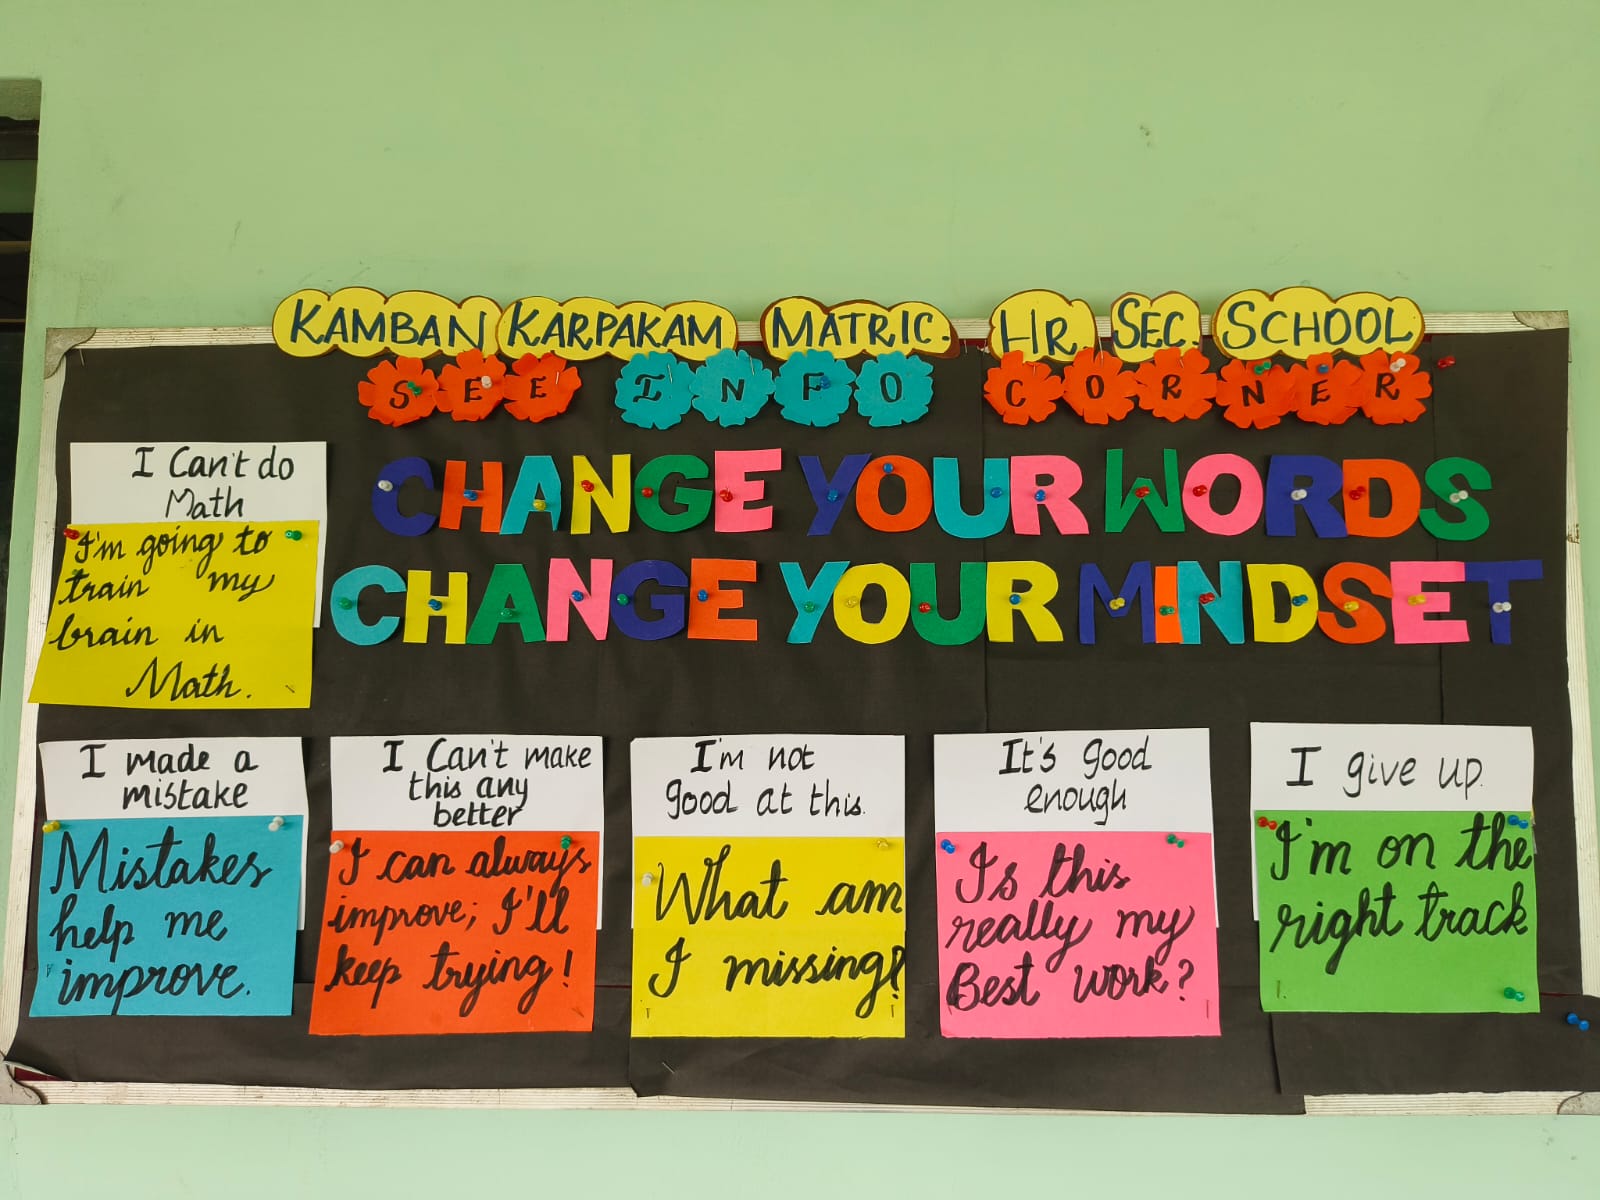 KAMBAN KARPAKAM MATRIC. HR. SEC. SCHOOL
SEE INFO CORNER
CHANGE YOUR WORDS
CHANGE YOUR MINDSET
I Can't do
Math
I'm going to
train my
brain in
Math.
I made a
mistake
Mistakes
help me
improve.
I Can't make
this any
better
I can always
improve; I'll
keep trying!
I'm not
good at this.
What am
I missing?
It's good
enough
Is this
really my
Best work?
I give up.
I'm on the
right track